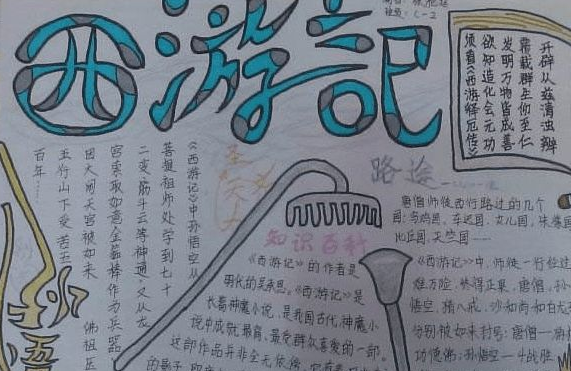 西游記
班级：
开辟从兹清浊辨
覆载群生仰至仁
发明万物皆成善
欲知造化会元功
须看《西游释厄传》
《西游记》中孙悟空从
菩提祖师处学到七十
二变、筋斗云等神通，又从龙
宫索取如意金箍棒作为兵器
因大闹天宫被如来佛祖压
五行山下受苦五
百年……
悟
路途
唐僧师徒西行路过的几个
国：乌鸡国、车迟国、女儿国、
比丘国、天竺国……
知识百科
《西游记》的作者是
明代的吴承恩。《西游记》是
长篇神魔小说，是我国古代神魔小
说中成就最高、最受群众喜爱的一部。
这部作品并非全无依
《西游记》中，师徒一行经过
难万险，终得正果，唐僧，孙
悟空，猪八戒，沙和尚和白龙
分别被如来封号：唐僧一
功德佛；孙悟空一斗战胜